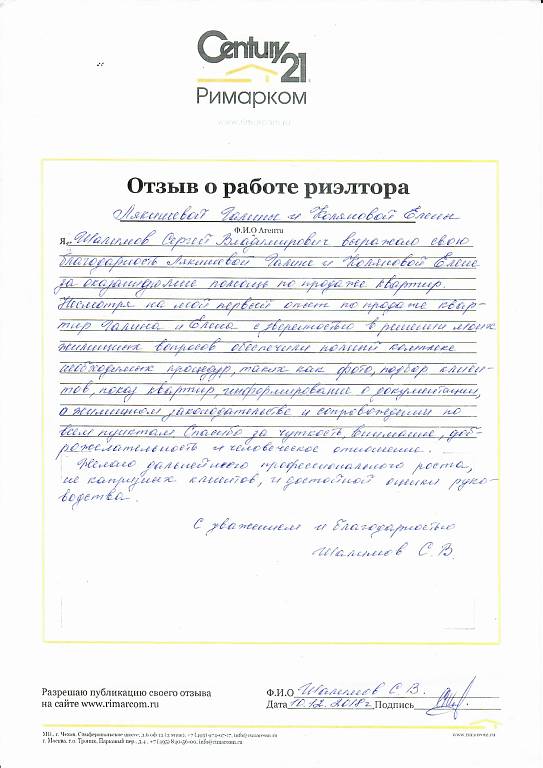 Century 21
Римарком
www.rimarcom.ru
Отзыв о работе риэлтора
Лякишевой Галины и Коляновой Елены
Ф.И.О Агента
Я, Шалимов Сергей Владимирович выражаю свою
благодарность Лякишевой Галине и Коляновой Елене
за оказанную мне помощь по продаже квартир.
Несмотря на мой первый опыт по продаже квар-
тир Галина и Елена с уверенностью в решении моих
жилищных вопросов обеспечили полный комплекс
необходимых процедур, таких как фото, подбор клиен-
тов, показ квартир, информирование о документации,
о жилищном законодательстве и сопровождении по
всем пунктам. Спасибо за чуткость, внимание, доб-
рожелательность и человеческое отношение.
Желаю дальнейшего профессионального роста,
не капризных клиентов, и достойной оценки руко-
водства.
С уважением и благодарностью
Шалимов С.В.
Разрешаю публикацию своего отзыва
на сайте www.rimarcom.ru
Ф.И.О Шалимов С.В.
Дата 10.12.2018г Подпись
МО, г. Чехов, Симферопольское шоссе,
info@rimarcom.ru
www.rimarcom.ru
г. Москва, г.о. Троицк, Парковый пер., д.4, +7 (495) 840-56-00, info@rimarcom.ru